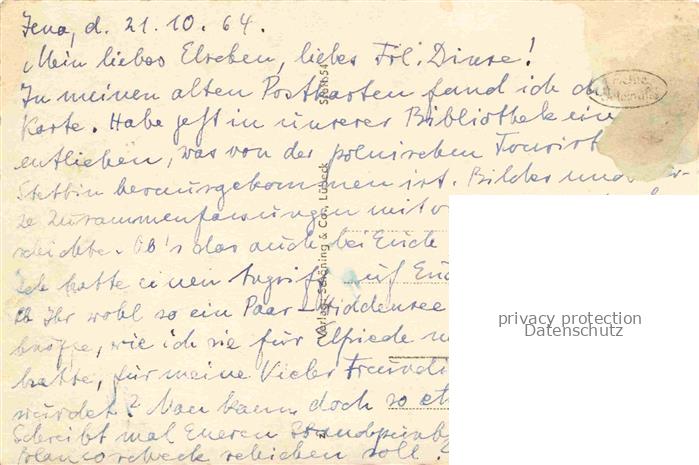 Jena, d. 21.10.64.
Mein liebes Elschen, liebes Frl. Dinse!
In meinen alten Postkarten fand ich die
Karte. Habe jetzt in unserer Bibliothek ein
entliehen, was von der polnischen Tourist
Stettin herausgekommen ist. Bilder und
ze Zusammenfassungen mit
schichte. Ob's das auch bei Euch
Ich hatte einen Angriff auf Euc
Ihr wohl so ein Paar Hiddensee
knöpfe, wie ich sie für Elfriede
hatte, für meine Kieler Freundi
würdet? Man kann doch so et
Schreibt mal Eueren
Blancoscheck schicken soll?
Verlag Schöning & Co., Lübeck
privacy protection
Datenschutz